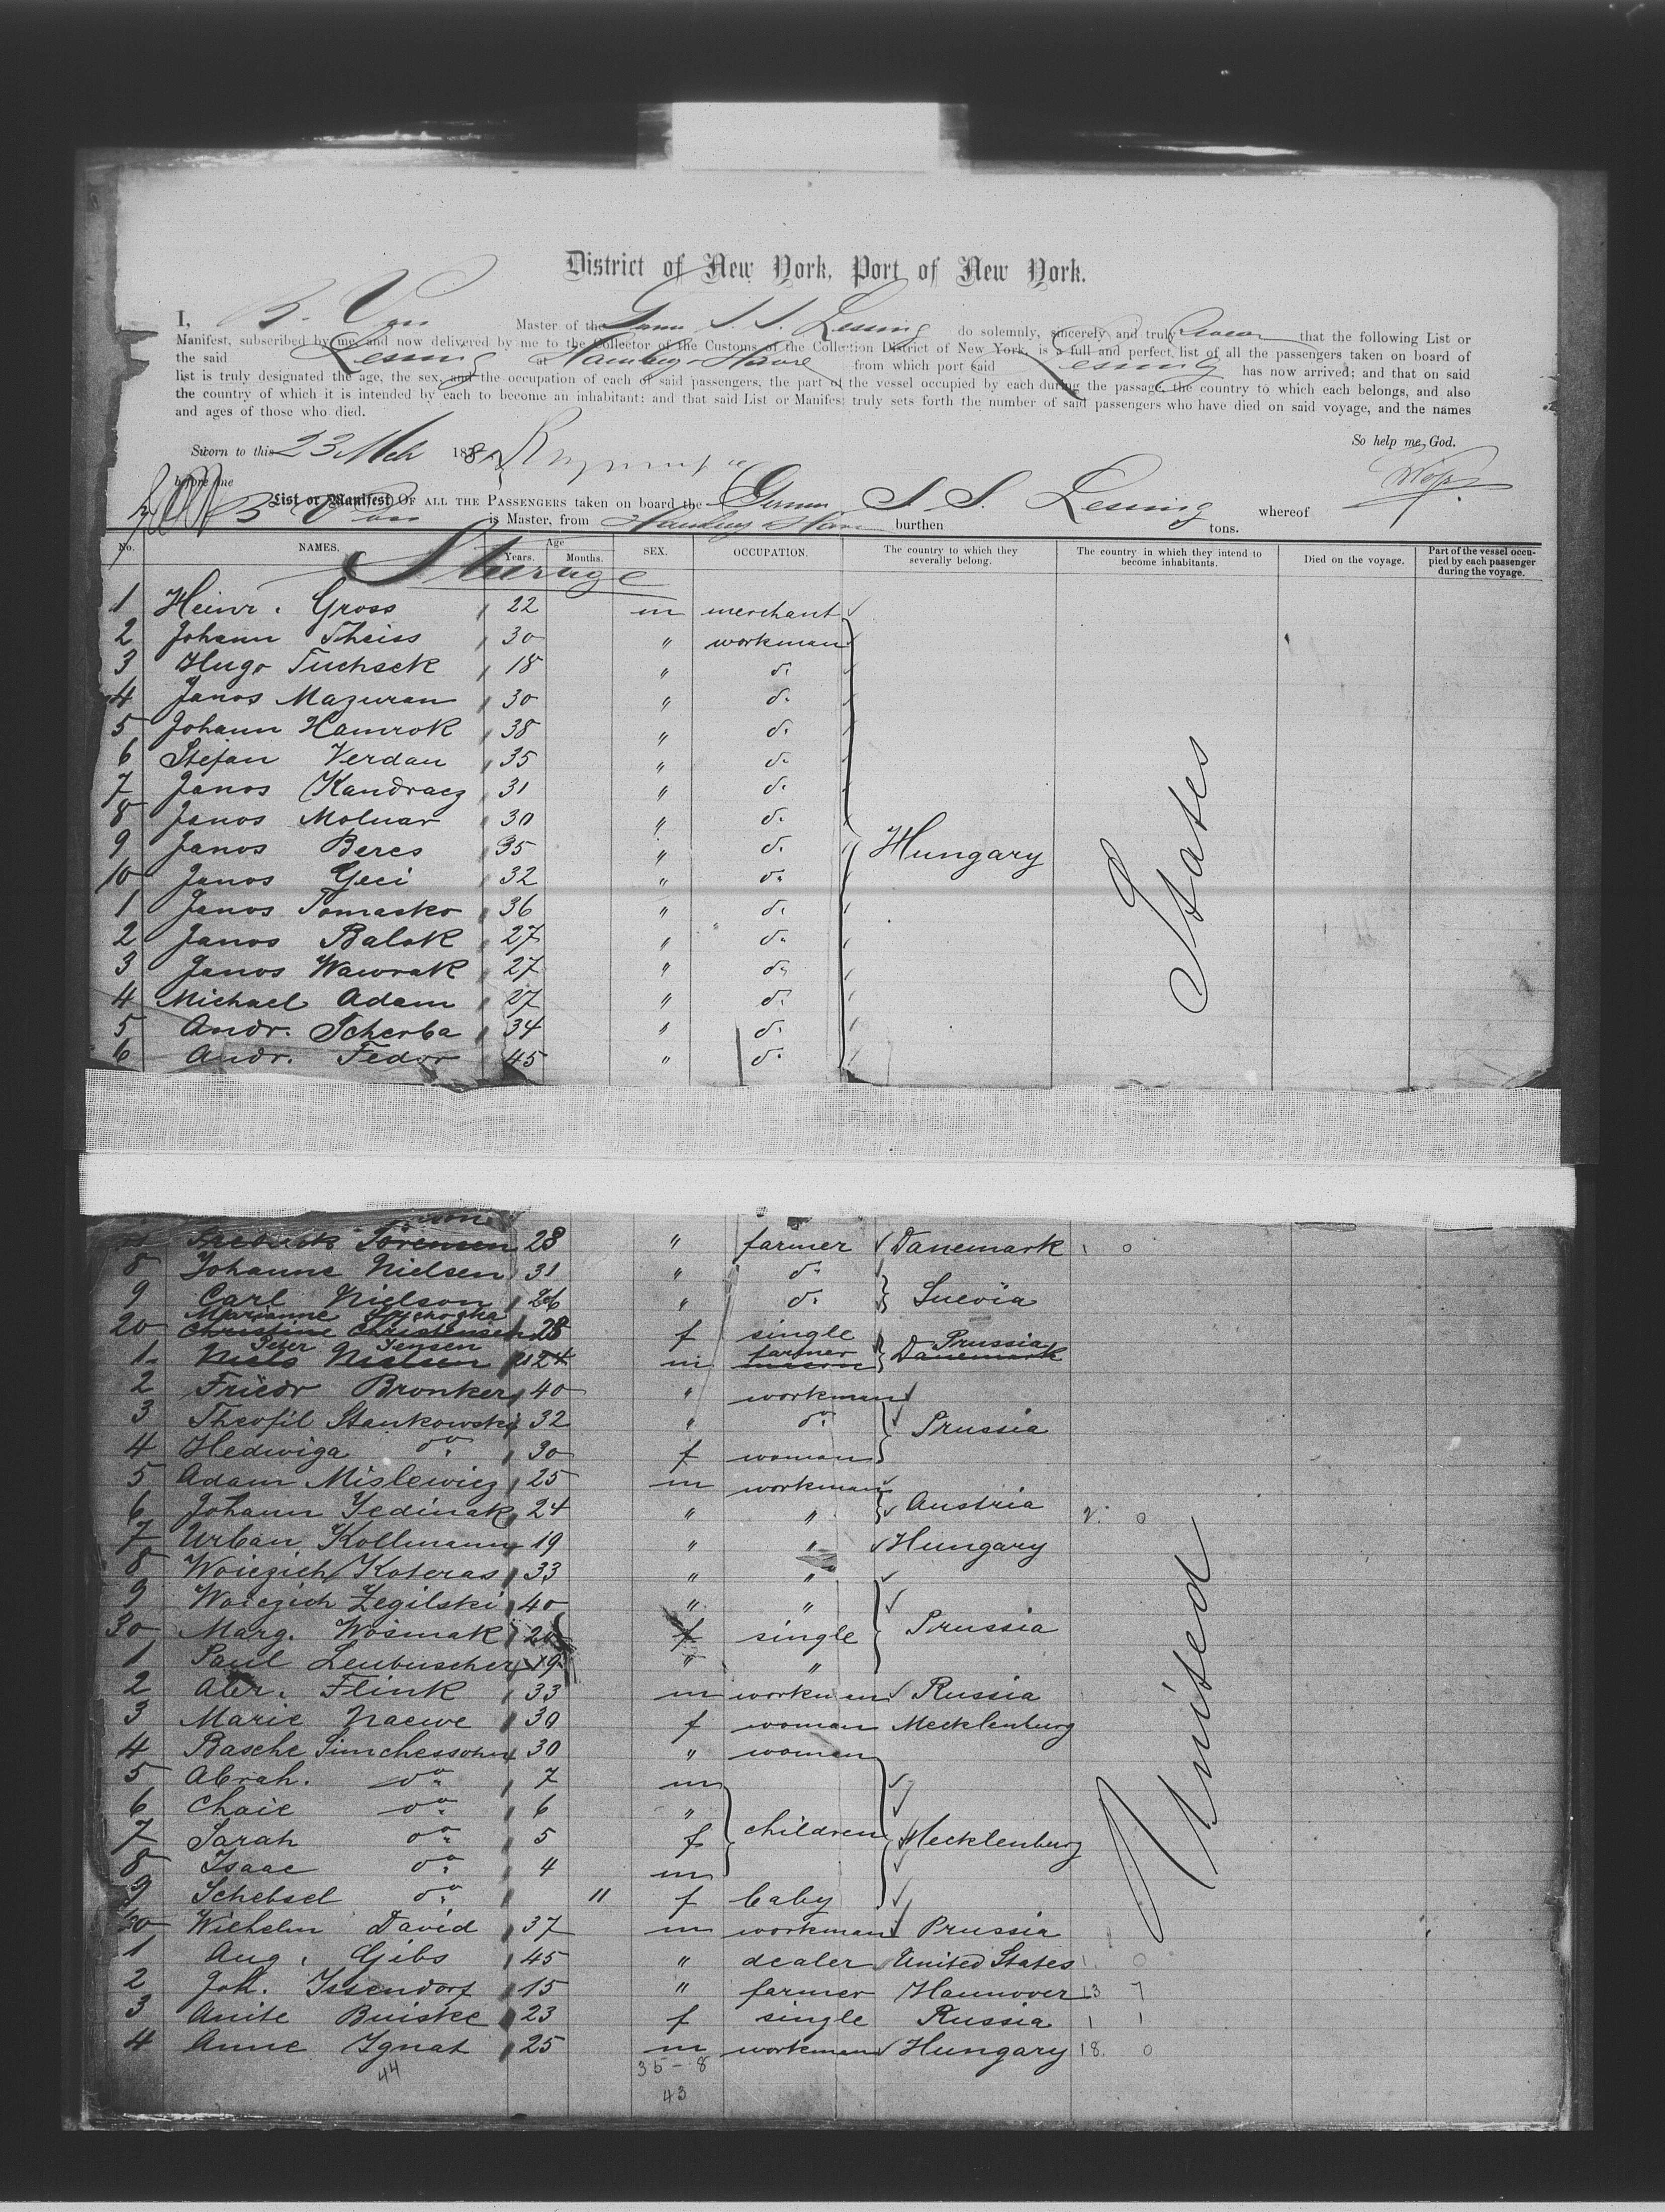 District of New York, Port of New York.
I, B. Vo Master of the Germ S. S. Lessing do solemnly, sincerely and truly swear that the following List or
Manifest, subscribed by me, and now delivered by me to the Collector of the Customs of the Collection District of New York, is a full and perfect list of all the passengers taken on board of
the said Lessing at Hamburg Havre from which port said Lessing has now arrived; and that on said
list is truly designated the age, the sex, and the occupation of each of said passengers, the part of the vessel occupied by each during the passage, the country to which each belongs, and also
the country of which it is intended by each to become an inhabitant; and that said List or Manifest truly sets forth the number of said passengers who have died on said voyage, and the names
and ages of those who died.
So help me God.
Sworn to this 23 Mch 188
before me
List or Manifest OF ALL THE PASSENGERS taken on board the German S. S. Lessing whereof
is Master, from Hamburg Havre burthen tons.
No. NAMES. Age Years. Months. SEX. OCCUPATION. The country to which they severally belong. The country in which they intend to become inhabitants. Died on the voyage. Part of the vessel occupied by each passenger during the voyage.
Steerage
1 Heinr. Gross 22 m merchant
2 Johann Theiss 30 " workman
3 Hugo Tuchsek 18 " do
4 Janos Mazuran 30 " do
5 Johann Hamrok 38 " do
6 Stefan Verdan 35 " do
7 Janos Kandracz 31 " do
8 Janos Molnar 30 " do
9 Janos Beres 35 " do Hungary
10 Janos Geci 32 " do
1 Janos Tomasko 36 " do
2 Janos Balok 27 " do
3 Janos Wawrak 27 " do
4 Michael Adam 27 " do
5 Andr. Scherba 34 " do
6 Andr. Fedor 45 " do
States
Frederik Sörensen 28 " farmer Danemark 1 0
8 Johanne Nielsen 31 " do
9 Carl Nielson 26 " do Suevia
Marianne
20 Christine Christensen 28 f single Prussia
Peter Jensen farmer
1 Niels Nielsen 24 m Danemark
2 Friedr Bronker 40 " workman
3 Theofil Stankowski 32 " do Prussia
4 Hedwiga do 30 f woman
5 Adam Mislewicz 25 m workman
6 Johann Jedinak 24 " " Austria 2. 0
7 Urban Kollmann 19 " " Hungary
8 Woiczich Koteras 33 " "
9 Woiczich Zegilski 40 " "
30 Marg. Wosmak 20 f single Prussia
1 Paul Leubuscher 19 " "
2 Abr. Flink 33 m workman Russia
3 Marie Naewe 30 f woman Mecklenburg
4 Basche Simchessohn 30 " woman
5 Abrah. do 7 m
6 Chaie do 6 "
7 Sarah do 5 f children Mecklenburg
8 Isaac do 4 m
9 Schebsel do 11 f baby
30 Wilhelm David 37 m workman Prussia
1 Aug. Gibs 45 " dealer United States 1 0
2 Joh. Issendorf 15 " farmer Hannover 13 7
3 Anite Buiske 23 f single Russia 1 1
4 Anne Ignat 25 m workman Hungary 18. 0
United
44
35 - 8
43